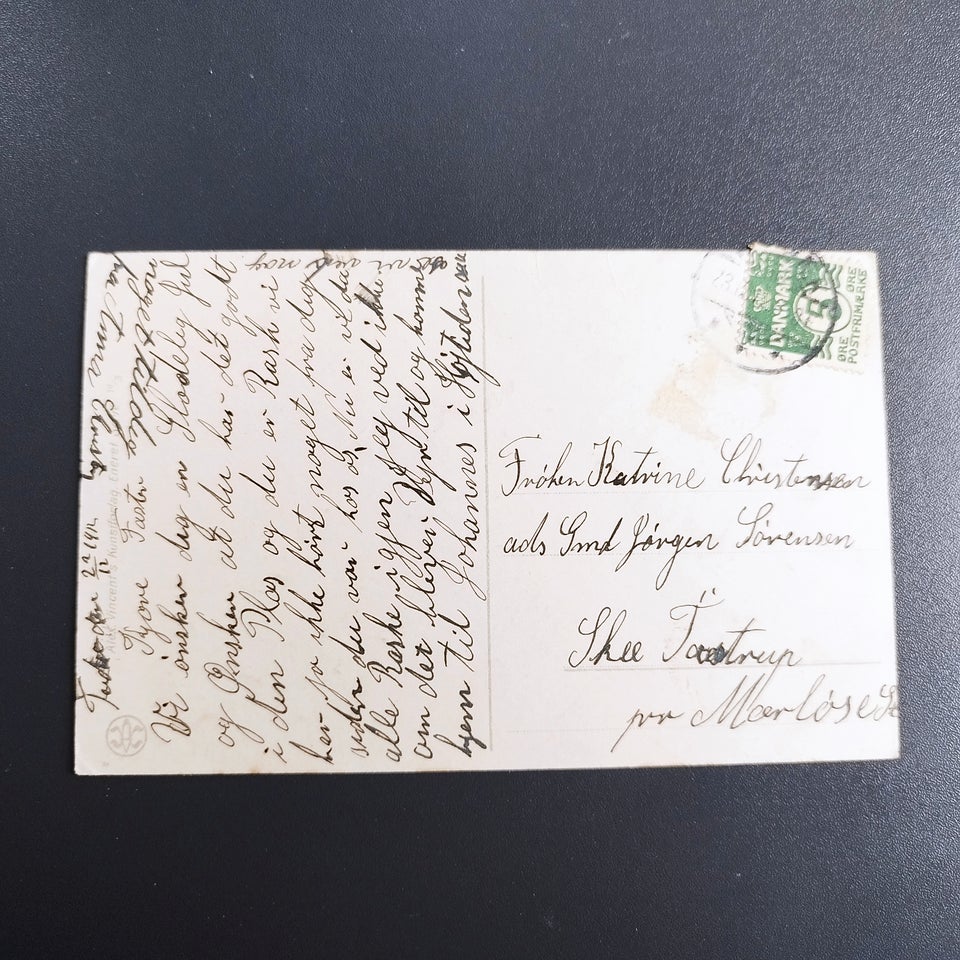 den 22/12 1914
Kjære Faster
Vi ønsker dig en Glædelig Jul
og Ønsken at du har det godt
i den Plas og du er Rask vi
har jo ikke hørt noget fra dig
siden du var hos os Nu er vi da
alle Raske igjen Jeg ved ikke
om det bliver Vejr til og komme
hjem til Johannes i Højtiden
so vi nog
noget tildig
fra Anna
Vincent's Kunstforlag, Eneret
DANMARK
5
ØRE
POSTFRIMÆRKE
ØRE
Frøken Katrine Christensen
ads Gmd Jørgen Sørensen
Skee Taastrup
pr Mørløse St